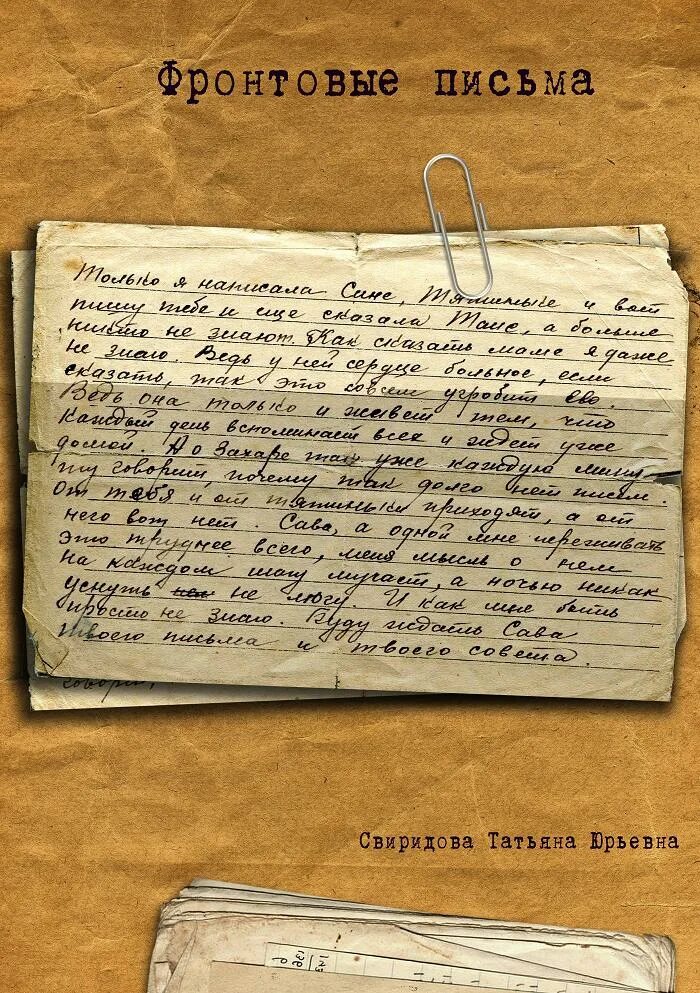 Фронтовые письма
Только я написала Сане, Тятиньке и вот
пишу тебе и еще сказала Таис, а больше
никто не знают. Как сказать маме я даже
не знаю. Ведь у ней сердце больное, если
сказать, так это совсем угробит ее.
Ведь она только и живет тем, что
каждый день вспоминает всех и ждет уже
домой. А о Захаре так уже каждую мину
ту говорит, почему так долго нет писем.
От тебя и от тятиньки приходят, а от
него вот нет. Сава, а одной мне переживать
это труднее всего, меня мысль о нем
на каждом шагу мучает, а ночью никак
уснуть не могу. И как мне быть
просто не знаю. Буду ждать Сава
твоего письма и твоего совета.
говорит,
Свиридова Татьяна Юрьевна